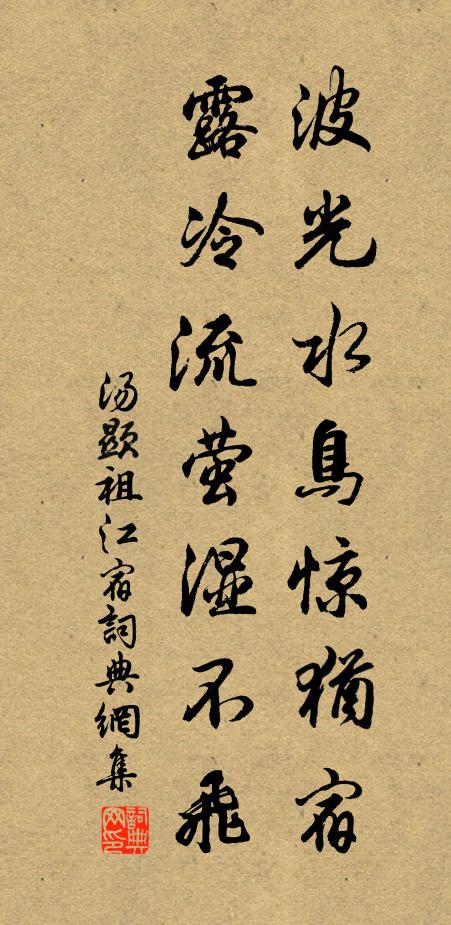 波光水鳥惊猶宿
露冷流萤湿不飛
汤顯祖江宿詞典網集
詞典网印